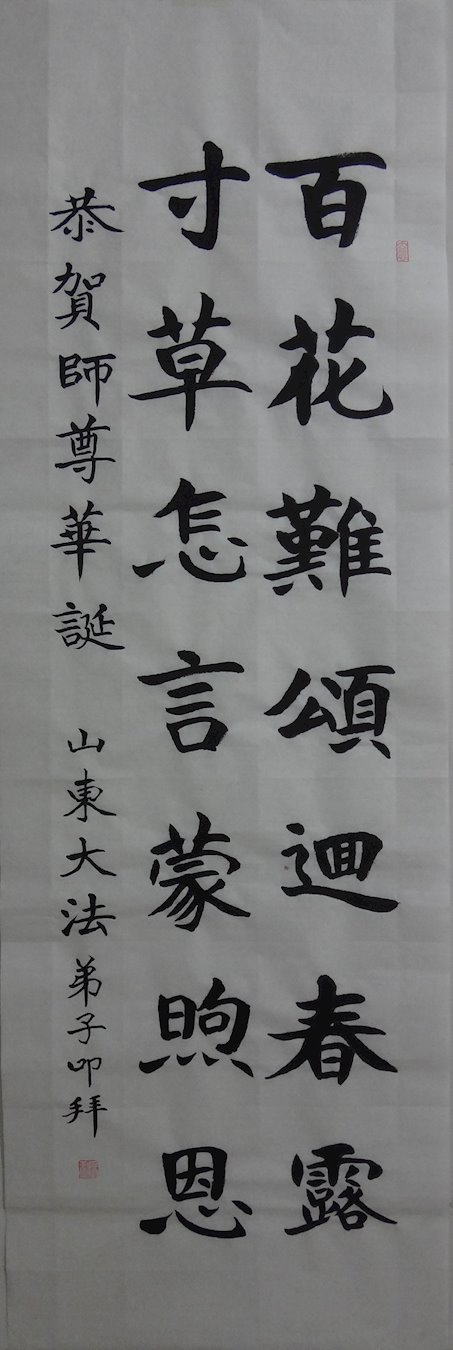 百花難頌迴春露
寸草怎言蒙煦恩
恭賀師尊華誕 山東大法弟子叩拜